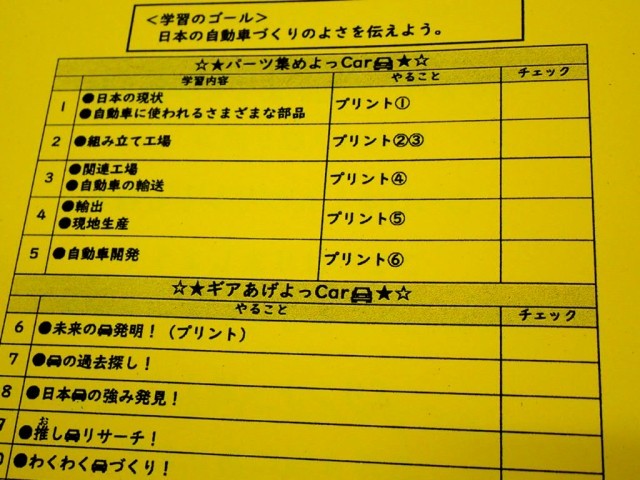 ＜学習のゴール＞
日本の自動車づくりのよさを伝えよう。
☆★パーツ集めよっCar🚗★☆
学習内容 やること チェック
1 ●日本の現状
●自動車に使われるさまざまな部品 プリント①
2 ●組み立て工場 プリント②③
3 ●関連工場
●自動車の輸送 プリント④
4 ●輸出
●現地生産 プリント⑤
5 ●自動車開発 プリント⑥
☆★ギアあげよっCar🚗★☆
やること チェック
6 ●未来の🚗発明！（プリント）
7 ●🚗の過去探し！
8 ●日本🚗の強み発見！
●推し🚗リサーチ！
お
●わくわく🚗づくり！